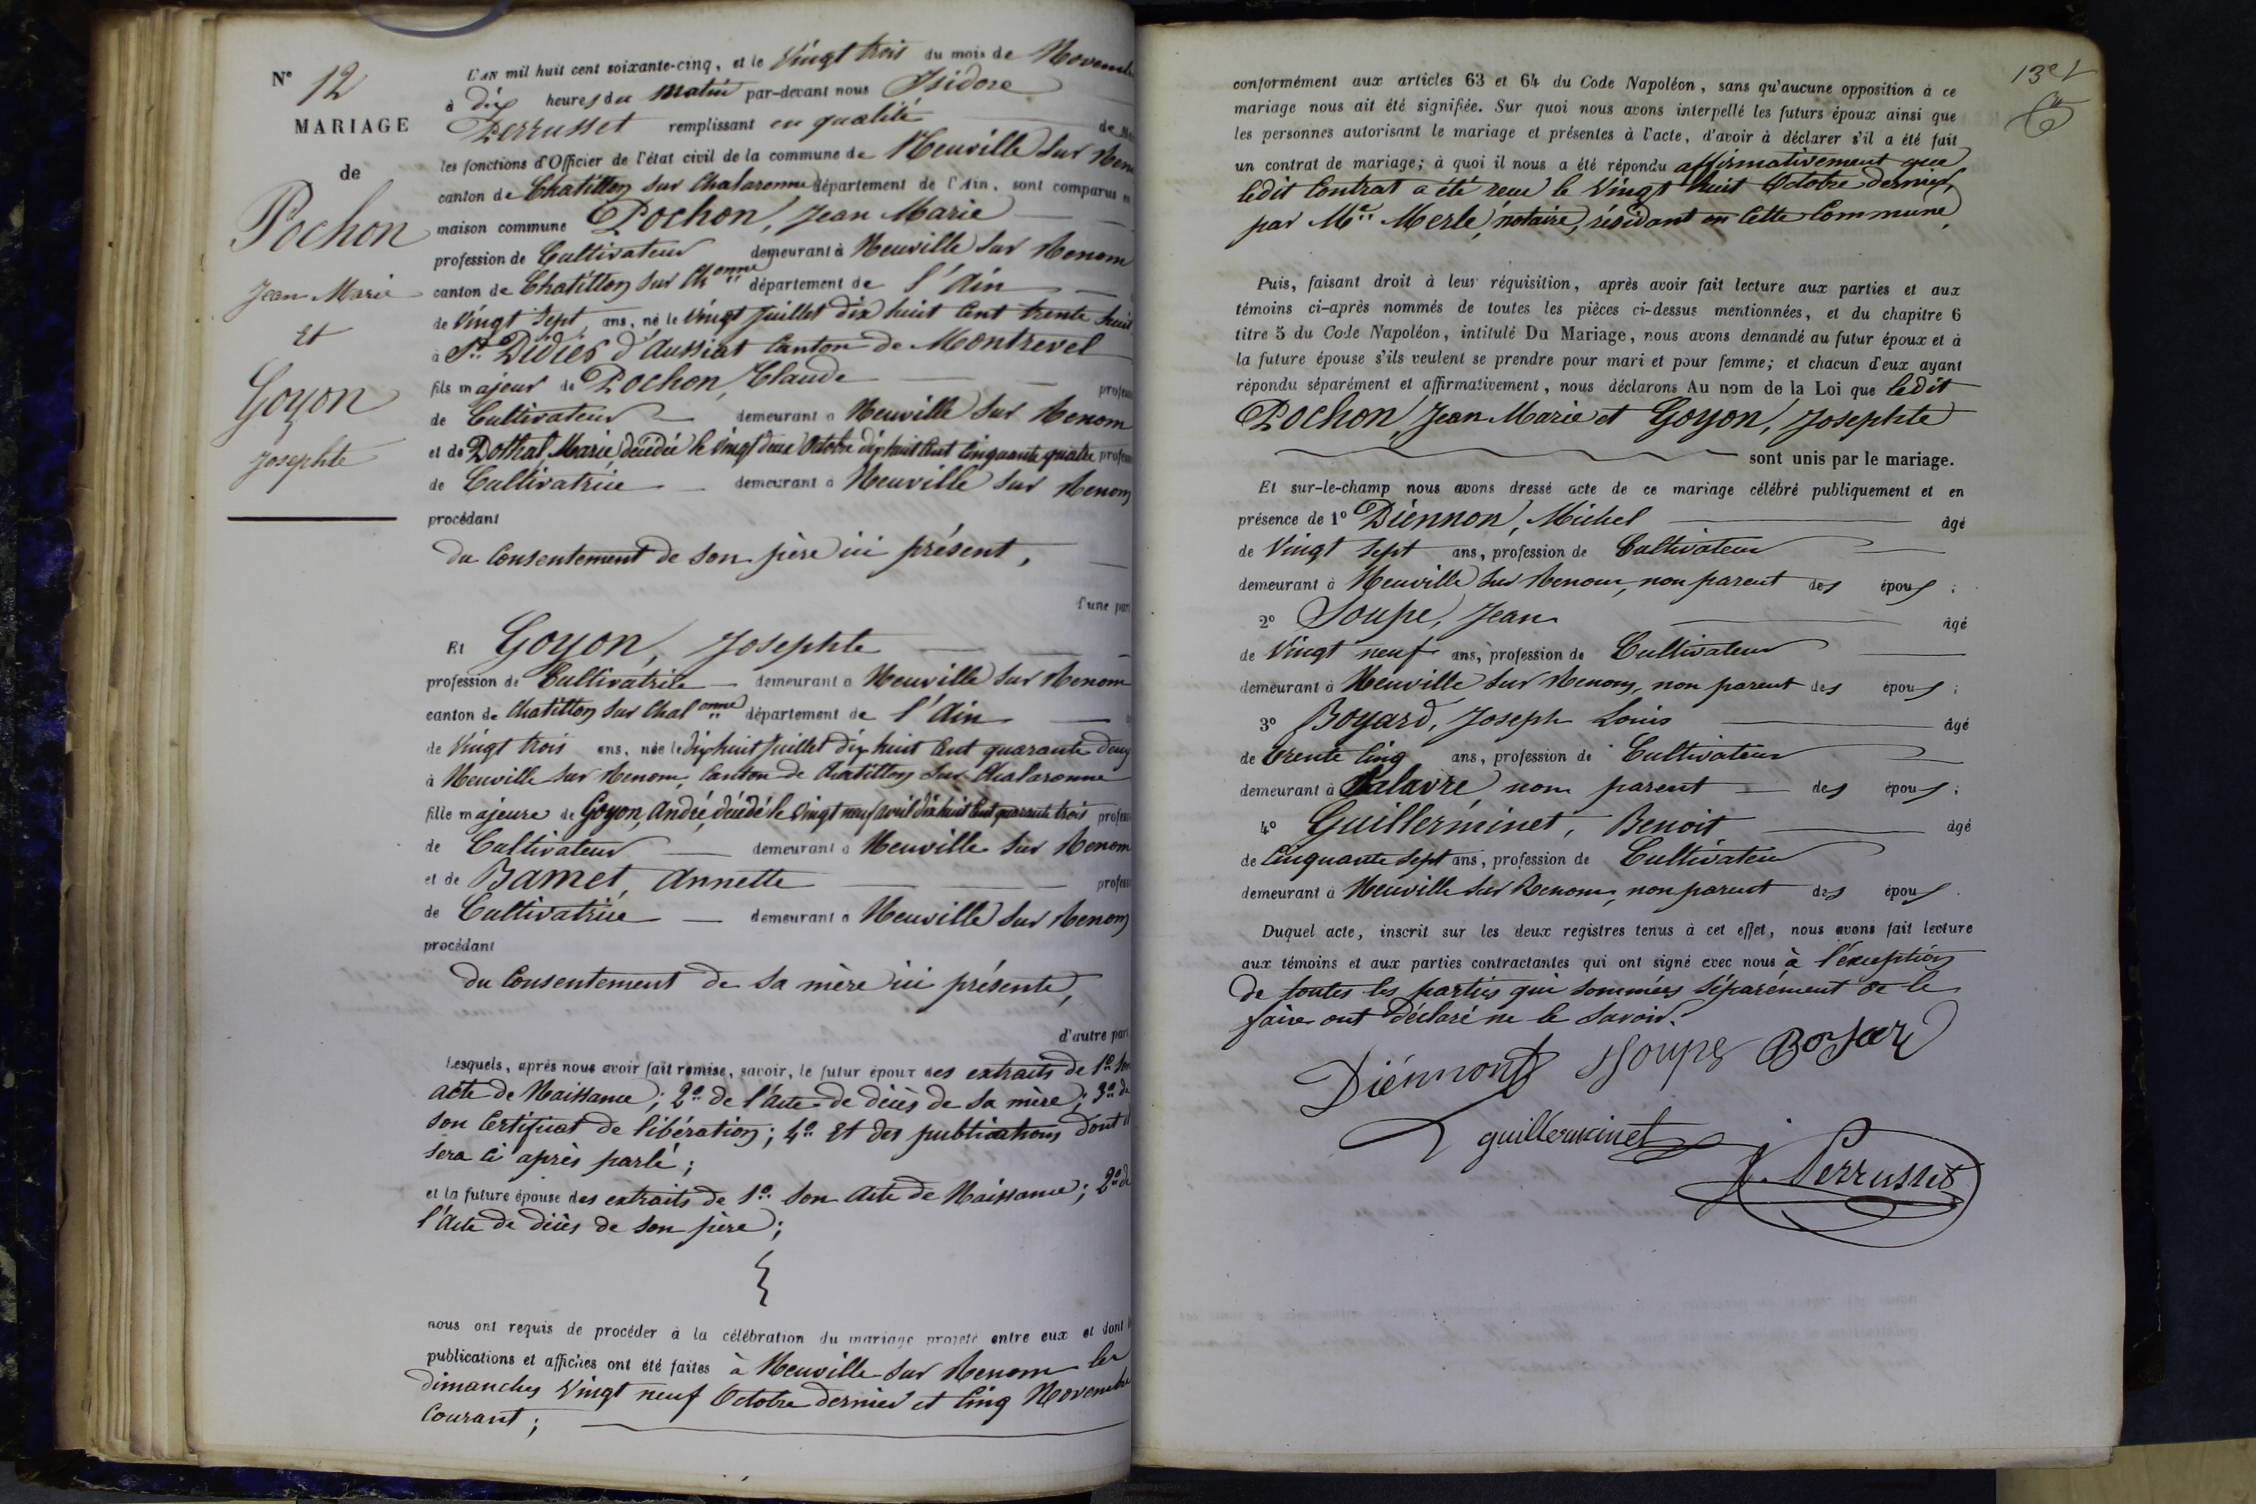 N° 12
MARIAGE
de
Pochon
Jean Marie
et
Goyon
Josephte
L'AN mil huit cent soixante-cinq, et le Vingt trois du mois de Novembre
à dix heures du matin par-devant nous Isidore
Perrusset remplissant en qualité de
les fonctions d'Officier de l'état civil de la commune de Neuville sur Renom
canton de Chatillon sur Chalaronne département de l'Ain, sont comparus en
maison commune Pochon, Jean Marie
profession de Cultivateur demeurant à Neuville sur Renom
canton de Chatillon sur Ch.onne département de l'Ain
de Vingt sept ans, né le vingt Juillet dix huit Cent trente huit
à St. Didier d'Aussiat Canton de Montrevel
fils majeur de Pochon, Claude profession
de Cultivateur demeurant à Neuville sur Renom
et de Dothal Marie, décédée le vingt deux Octobre dix huit Cent Cinquante quatre profession
de Cultivatrice demeurant à Neuville sur Renom
procédant
du Consentement de son père ici présent,
d'une part
Et Goyon, Josephte
profession de Cultivatrice demeurant à Neuville sur Renom
canton de Chatillon sur Chal.onne département de l'Ain
de Vingt trois ans, née le dix huit Juillet dix huit Cent quarante deux
à Neuville sur Renom, Canton de Chatillon sur Chalaronne
fille majeure de Goyon, André, décédé le vingt neuf avril dix huit Cent quarante trois profession
de Cultivateur demeurant à Neuville sur Renom
et de Bamet, Annette profession
de Cultivatrice demeurant à Neuville sur Renom
procédant
du Consentement de sa mère ici présente,
d'autre part
Lesquels, après nous avoir fait remise, savoir, le futur époux des extraits de 1° Son
acte de Naissance; 2° de l'Acte de décès de sa mère; 3° de
son Certificat de libération; 4° Et des publications dont il
sera ci après parlé;
et la future épouse des extraits de 1° Son Acte de Naissance; 2° de
l'Acte de décès de son père;
nous ont requis de procéder à la célébration du mariage projeté entre eux et dont les
publications et affiches ont été faites à Neuville sur Renom les
dimanches Vingt neuf Octobre dernier et Cinq Novembre
Courant;
13e
conformément aux articles 63 et 64 du Code Napoléon, sans qu'aucune opposition à ce
mariage nous ait été signifiée. Sur quoi nous avons interpellé les futurs époux ainsi que
les personnes autorisant le mariage et présentes à l'acte, d'avoir à déclarer s'il a été fait
un contrat de mariage; à quoi il nous a été répondu affirmativement que
ledit Contrat a été reçu le Vingt huit Octobre dernier,
par Me Merle, notaire, résidant en Cette Commune,
Puis, faisant droit à leur réquisition, après avoir fait lecture aux parties et aux
témoins ci-après nommés de toutes les pièces ci-dessus mentionnées, et du chapitre 6
titre 5 du Code Napoléon, intitulé Du Mariage, nous avons demandé au futur époux et à
la future épouse s'ils veulent se prendre pour mari et pour femme; et chacun d'eux ayant
répondu séparément et affirmativement, nous déclarons Au nom de la Loi que ledit
Pochon, Jean Marie et Goyon, Josephte
sont unis par le mariage.
Et sur-le-champ nous avons dressé acte de ce mariage célébré publiquement et en
présence de 1° Diénnon, Michel âgé
de Vingt sept ans, profession de Cultivateur
demeurant à Neuville sur Renom, non parent des époux;
2° Soupe, Jean âgé
de Vingt neuf ans, profession de Cultivateur
demeurant à Neuville sur Renom, non parent des époux;
3° Boyard, Joseph Louis âgé
de trente Cinq ans, profession de Cultivateur
demeurant à Salavre non parent des époux;
4° Guillerminet, Benoit âgé
de Cinquante sept ans, profession de Cultivateur
demeurant à Neuville sur Renom, non parent des époux.
Duquel acte, inscrit sur les deux registres tenus à cet effet, nous avons fait lecture
aux témoins et aux parties contractantes qui ont signé avec nous à l'exception
de toutes les parties qui sommées séparément de le
faire ont déclaré ne le savoir.
Diénnont Soupe Boyard
guillerminet
J. Perrusset